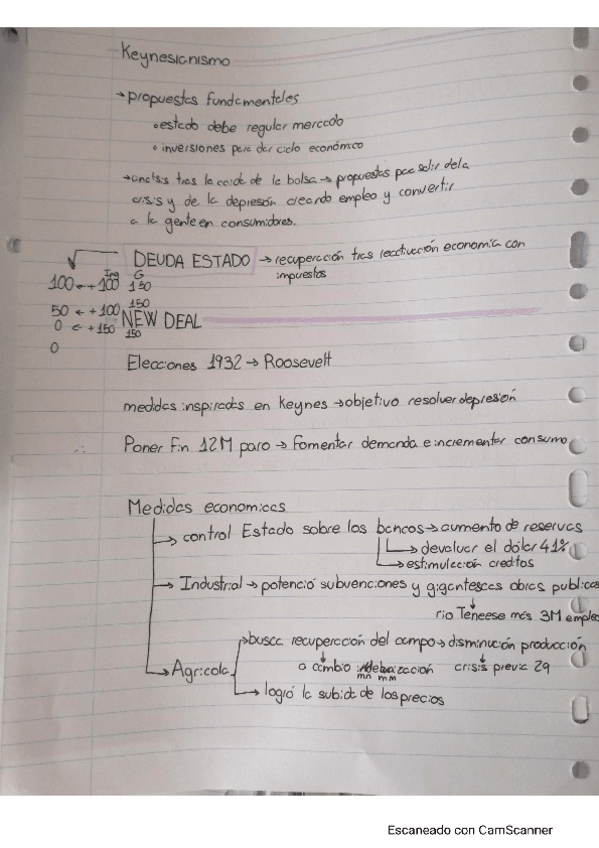 Keynesianismo
→ propuestas fundamentales
• estado debe regular mercado
• inversiones para der ciclo económico
→ analisis tras la caida de la bolsa → propuestas para salir de la
crisis y de la depresión creando empleo y convertir
a la gente en consumidores.
DEUDA ESTADO → recuperación tras reactivación economía con
impuestos
Ing G
100 ← + 100 150
50 ← + 100 150
0 ← + 150 150
0
NEW DEAL
Elecciones 1932 → Roosevelt
medidas inspiradas en Keynes → objetivo resolver depresión
Poner fin 12M paro → Fomentar demanda e incrementar consumo
Medidas economicas
→ control Estado sobre los bancos → aumento de reservas
→ devaluar el dólar 41%
→ estimulación creditos
→ Industrial → potenció subvenciones y gigantescas obras publicas
rio Teneese más 3M empleo
→ Agricola
→ busca recuperación del campo → disminución producción
a cambio mn mm crisis previa 29
→ logró la subida de los precios
Escaneado con CamScanner